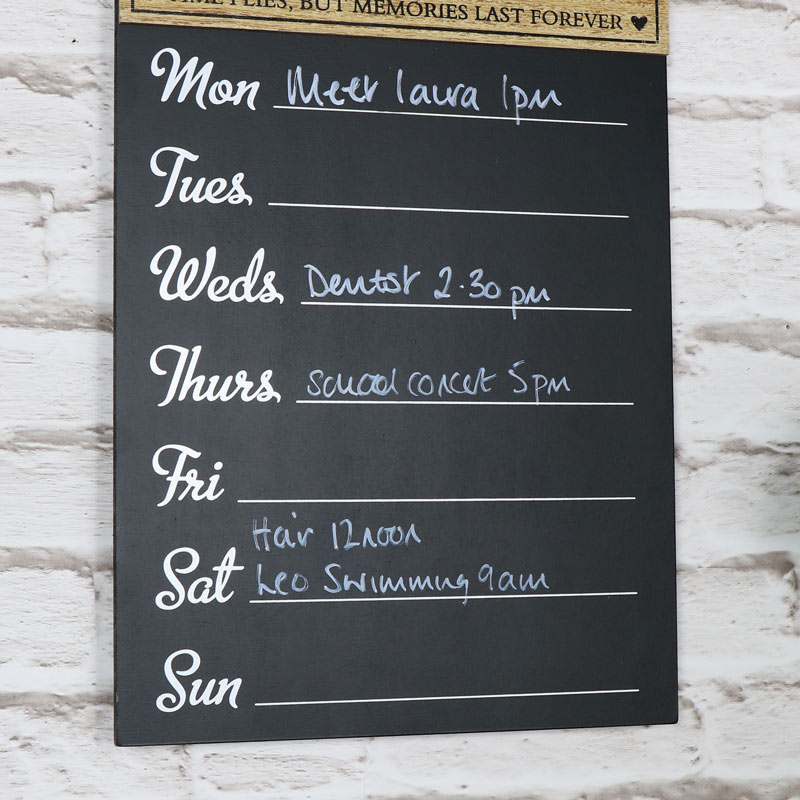 FLIES, BUT MEMORIES LAST FOREVER ♥
Mon Meet laura 1pm
Tues
Weds Dentist 2.30 pm
Thurs school concert 5pm
Fri
Hair 12noon
Sat Leo Swimming 9am
Sun